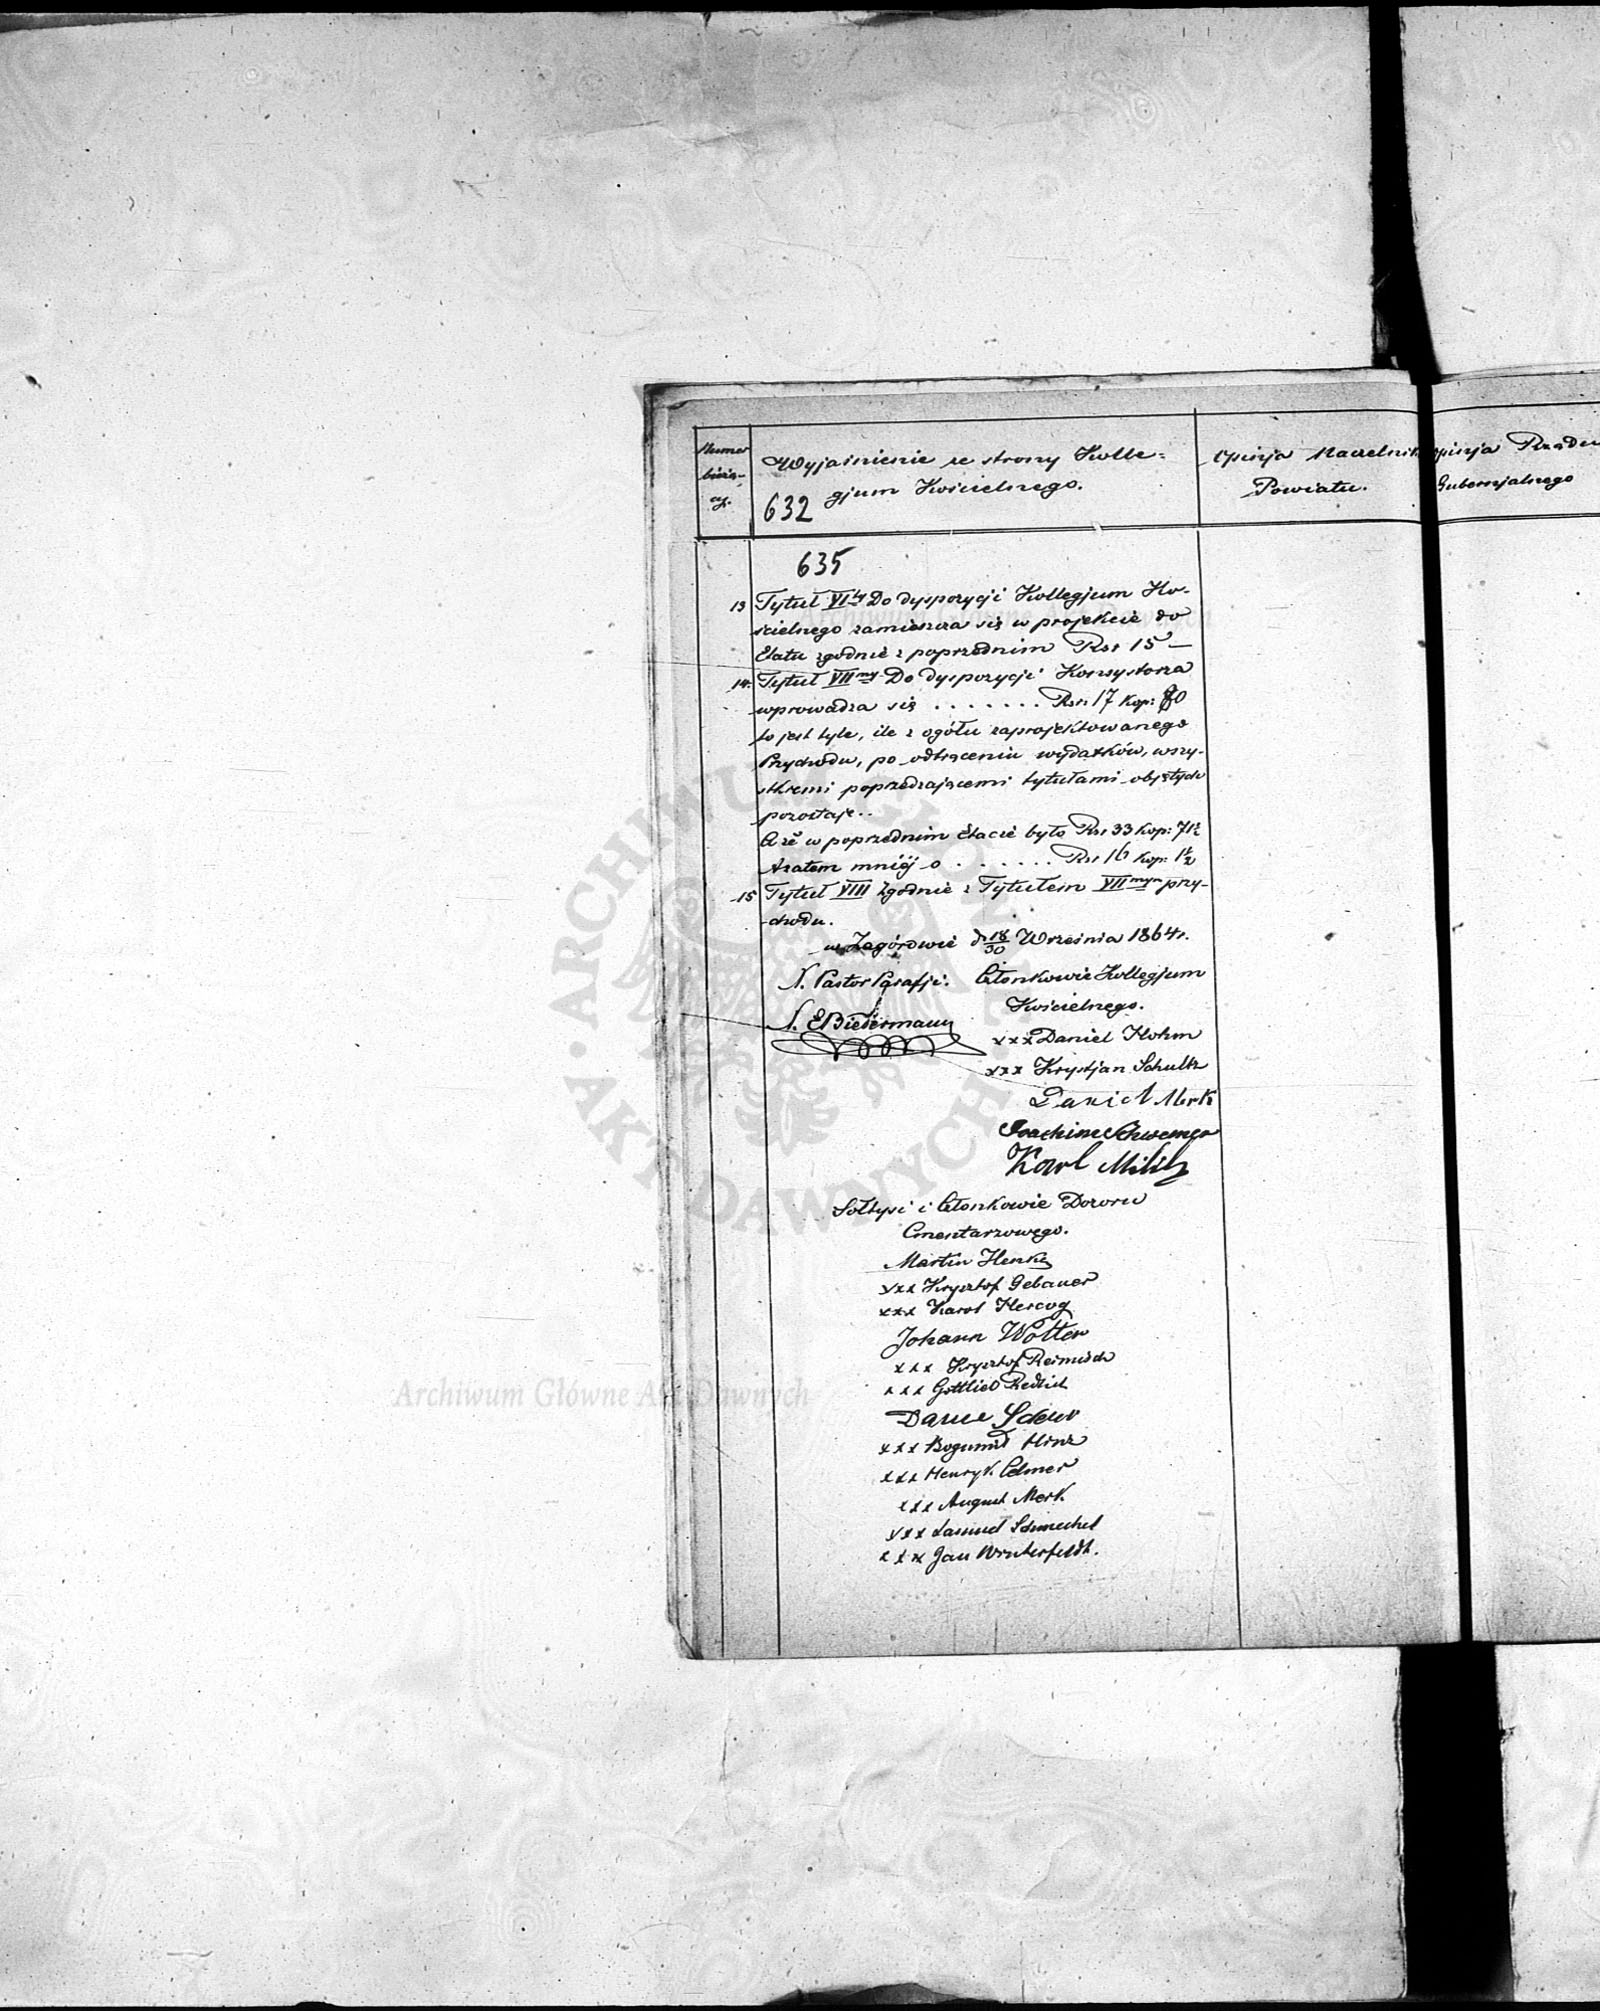 Numer
bieżą-
cy.
Wyjaśnienie ze strony Kolle=
gjum Kościelnego.
632
Opinja Naczelnika
Powiatu.
Opinja Rządu
Gubernjalnego
635
13 Tytuł VIty Do dyspozycji Kollegjum Ko-
ścielnego zamieszcza się w projekcie do
Etatu zgodnie z poprzednim Rsr 15 —
14. Tytuł VIImy Do dyspozycji Konsystorza
wprowadza się . . . . . . . Rsr. 17 Kop: 70
to jest tyle, ile z ogółu zaprojektowanego
Przychodu, po odtrąceniu wydatków, wszy-
stkiemi poprzedzającemi tytułami objętych
pozostaje..
A że w poprzednim Etacie było Rsr 33 Kop: 71½
A zatem mniéj o . . . . . . Rsr 16 Kop: 1½
15 Tytuł VIII Zgodnie z Tytułem VIImym przy-
-chodu.
w Zagórowie d. 18/30 Września 1864 r.
N. Pastor Parafji. Członkowie Kollegjum
Kościelnego.
N. E Biedermann
xxx Daniel Hohm
xxx Krystjan Schultz
Daniel Merk
Joachim Schwemer
Karl Milih
Sołtysi i Członkowie Dozoru
Cmentarzowego.
Martin Henke
xxx Krysztof Gebauer
xxx Karol Hercog
Johann Wolter
xxx Krysztof Reimisch
xxx Gottlieb Redlich
xxx Bogumił Hinz
xxx Henryk Celmer
xxx August Merk.
xxx Samuel Schmechel
xxx Jan Winterfeldt.
ARCHIWUM GŁÓWNE AKT DAWNYCH
Archiwum Główne Akt Dawnych